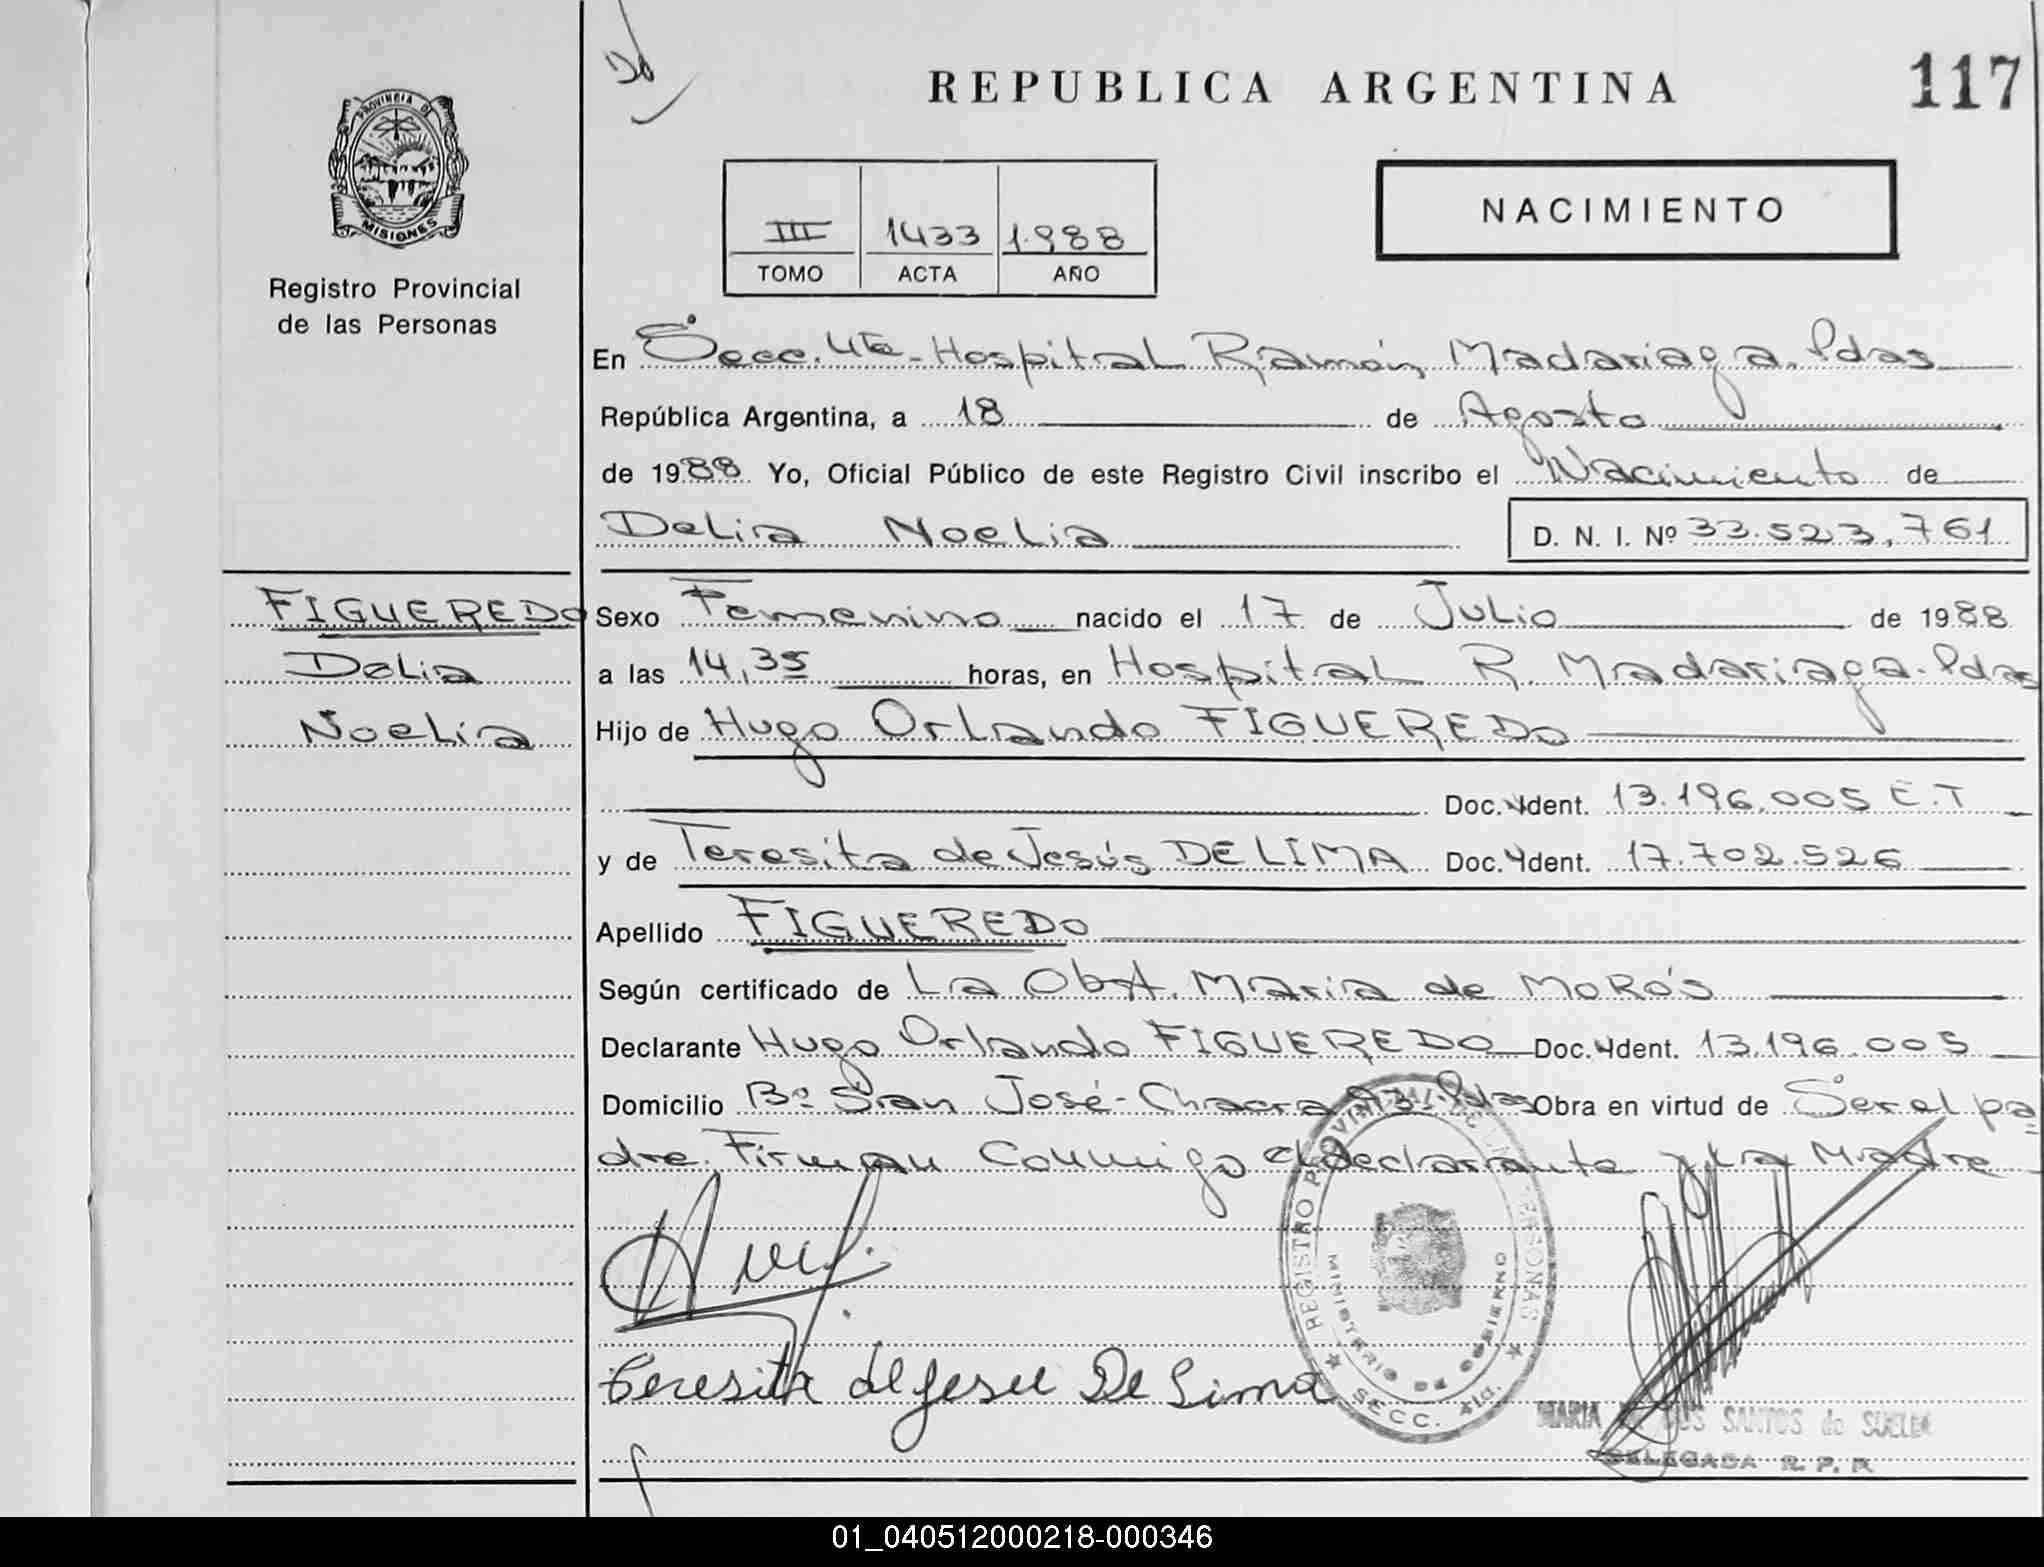 REPUBLICA ARGENTINA
117
PROVINCIA DE
MISIONES
Registro Provincial
de las Personas
III 1433 1.988
TOMO ACTA AÑO
NACIMIENTO
En Secc. 4ta - Hospital Ramón Madariaga. Pdas
República Argentina, a 18 de Agosto
de 1988 Yo, Oficial Público de este Registro Civil inscribo el Nacimiento de
Delia Noelia D. N. I. Nº 33.523.761
FIGUEREDO
Delia
Noelia
Sexo Femenino nacido el 17 de Julio de 1988
a las 14,35 horas, en Hospital R. Madariaga. Pdas
Hijo de Hugo Orlando FIGUEREDO
Doc. Ident. 13.196.005 E.T
y de Teresita de Jesús DE LIMA Doc. Ident. 17.702.526
Apellido FIGUEREDO
Según certificado de La Obst. Maria de MoRós
Declarante Hugo Orlando FIGUEREDO Doc. Ident. 13.196.005
Domicilio Bº San José - Chacra Pdas Obra en virtud de Ser el pa
dre. Firman Conmigo el declarante y La Madre
REGISTRO PROVINCIAL DE LAS PERSONAS
MINISTERIO DE GOBIERNO
SECC. 4ta.
Teresita de Jesu De Lima
MARIA DE LOS SANTOS de
DELEGADA R. P. P.
01_040512000218-000346